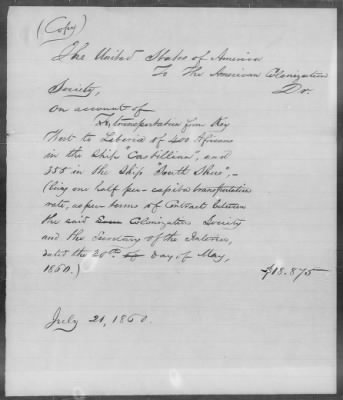 (Copy)
The United States of America
To The American Colonization
Society, Dr.
On account of
transportation from Key
West to Liberia of 400 Africans
in the Ship "Castillian", and
355 in the Ship "South Shore",-
(being one half per-capita transportation
rate, as per terms of Contract between
the said Colonization Society
and the Secretary of the Interior,
dated the 20th day of May,
1860.) $18.875
July 21, 1860.